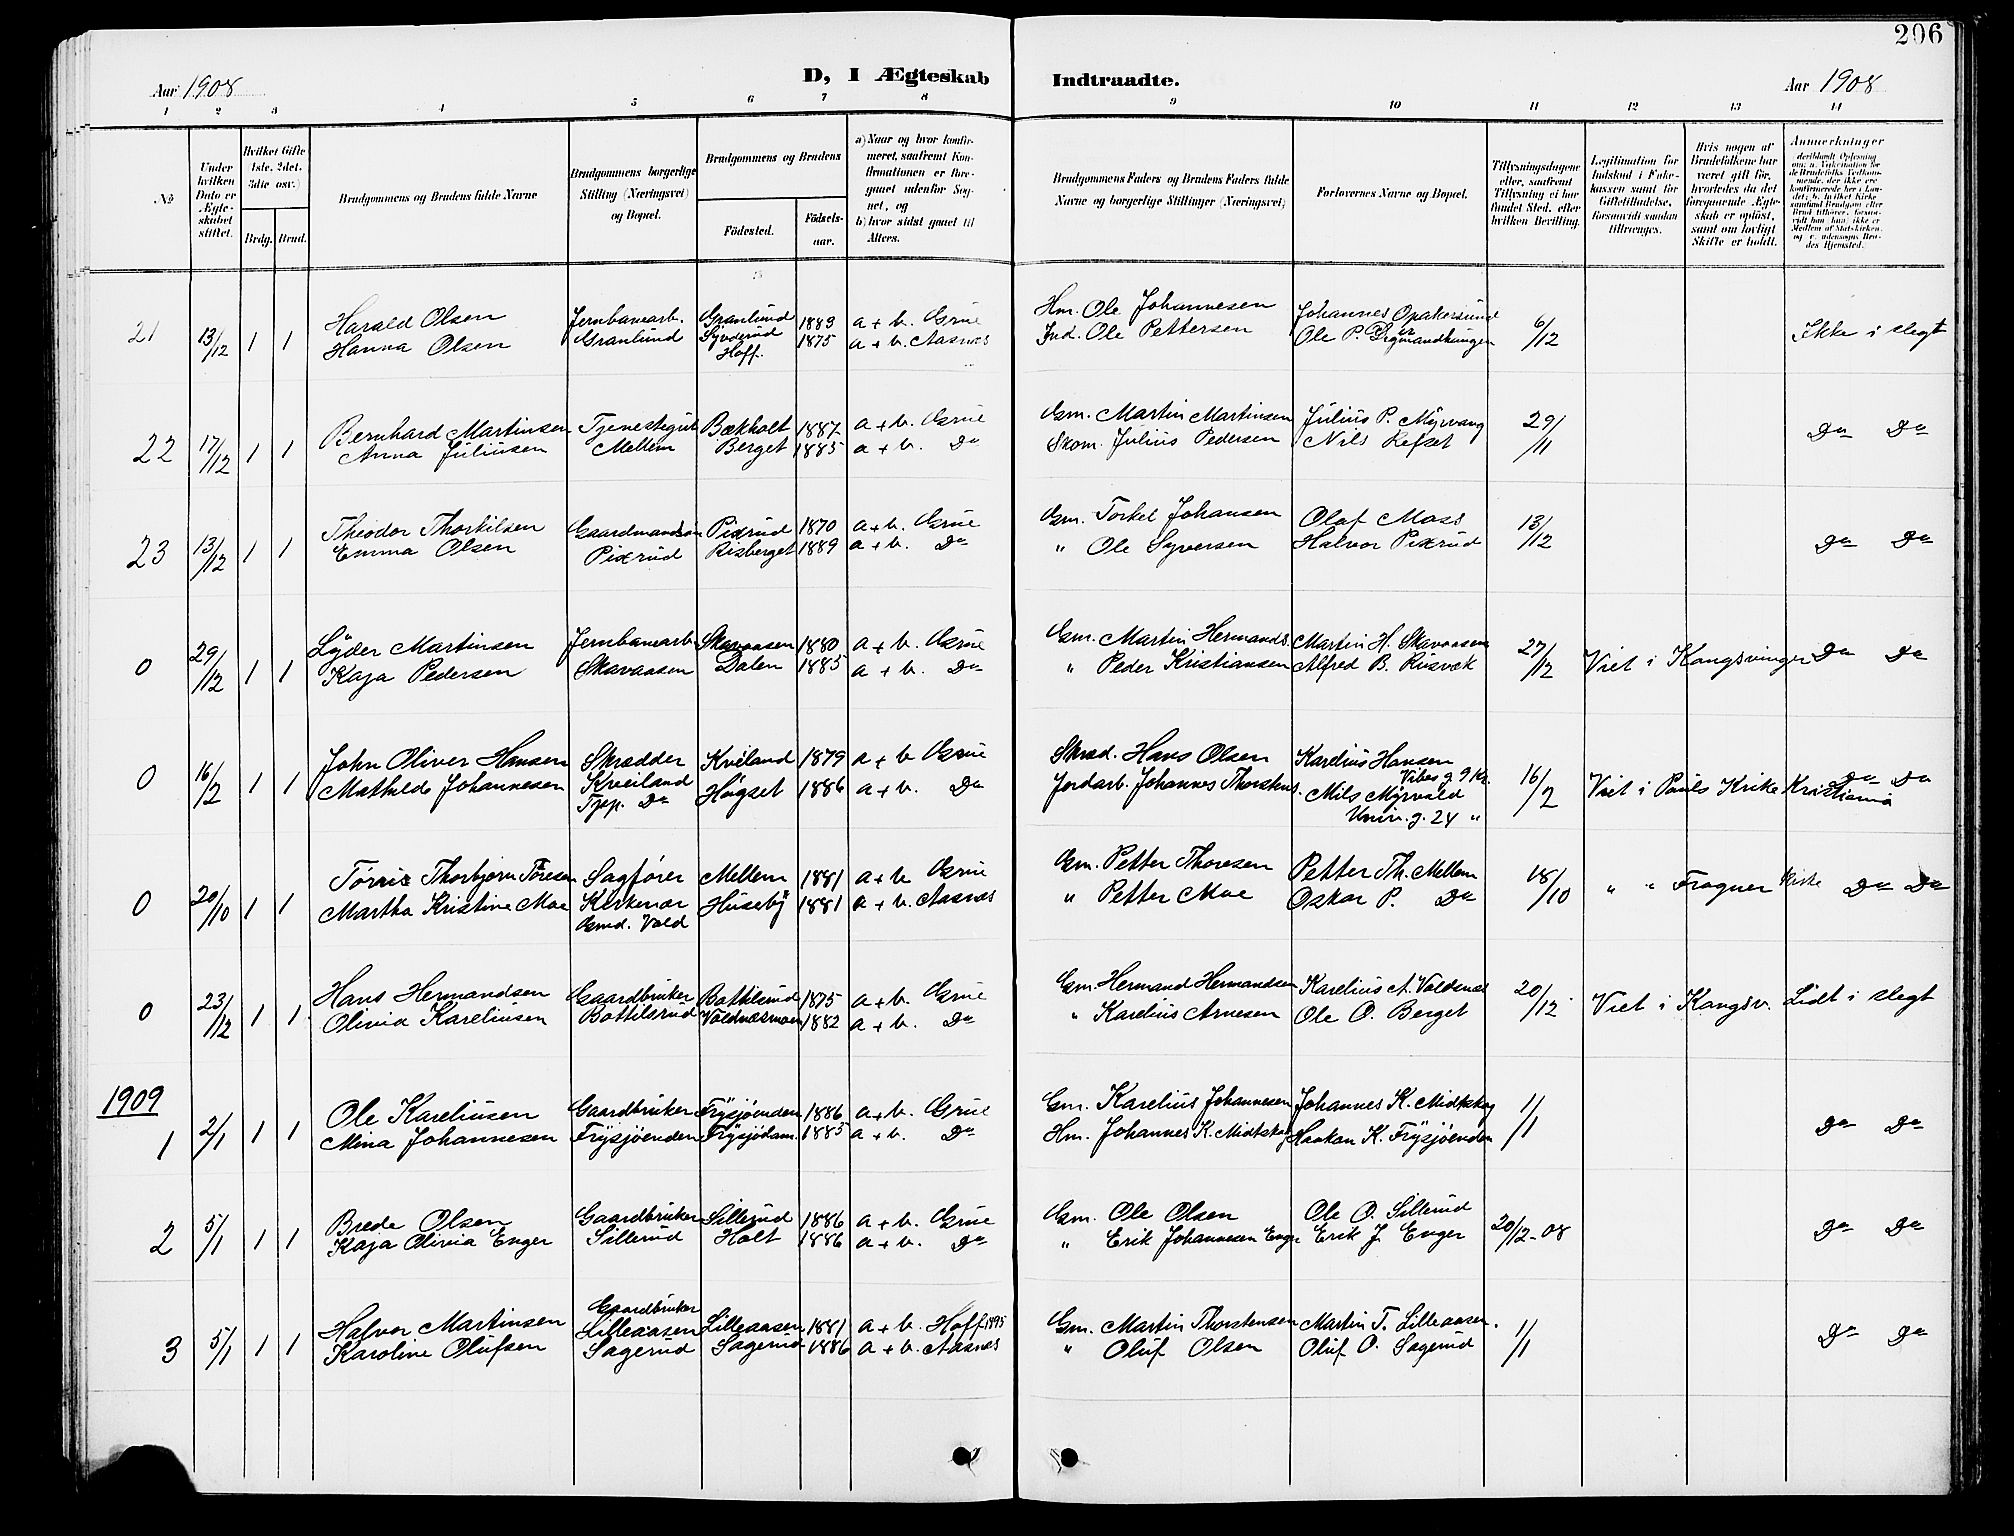 206
Aar 1908
D, I Ægteskab
Indtraadte.
Aar 1908
1 2 3 4 5 6 7 8 9 10 11 12 13 14
No
Under hvilken Dato er Ægteskabet stiftet.
Hvilket Gifte (1ste, 2det, 3die osv.)
Brdg. Brud.
Brudgommens og Brudens fulde Navne
Brudgommens borgerlige Stilling (Næringsvei) og Bopæl.
Brudgommens og Brudens
Fødested.
Fødselsaar.
a) Naar og hvor konfirmeret, saafremt Konfirmationen er foregaaet udenfor Sognet, og
b) hvor sidst gaaet til Alters.
Brudgommens Faders og Brudens Faders fulde Navne og borgerlige Stillinger (Næringsvei)
Forlovernes Navne og Bopæl.
Tillysningsdagene eller, saafremt Tillysning ei har fundet Sted, efter hvilken Bevilling.
Legitimation for Indskud i Enkekassen samt for Giftetilladelse, forsaavidt saadan tiltrænges.
Hvis nogen af Brudefolkene har været gift før, hvorledes da det foregaaende Ægteskab er opløst, samt om lovligt Skifte er holdt.
Anmærkninger
21 13/12 1 1 Harald Olsen Jernbanearb. Granlund 1889 a + b. Grue Hm. Ole Johannesen Johannes Opakersund 6/12 Ikke i slegt
Hanna Olsen Granlund Syverud Hoff. 1875 a + b. Aasnes Ind. Ole Pettersen Ole P.
22 17/12 1 1 Bernhard Martinsen Tjenestegut Bækholt 1887 a + b. Grue Gm. Martin Martinsen Julius P. Myrvang 29/11 Do Do
Anna Juliusen Mellem Berget 1885 a + b. Do Skom. Julius Pedersen Nils Refset
23 13/12 1 1 Theodor Thorkilsen Gaardmandssøn Pixrud 1870 a + b. Grue Gm. Torkel Johansen Olaf Moss 13/12 Do Do
Emma Olsen Pixrud Risberget 1889 a + b. Do " Ole Syversen Halvor Pixrud
0 29/12 1 1 Lyder Martinsen Jernbanearb. Skavaasen 1880 a + b. Grue Gm. Martin Hermands. Martin H. Skavaasen 27/12 Viet i Kongsvinger Do Do
Kaja Pedersen Skavaasen Dalen 1885 a + b. Do " Peder Kristiansen Alfred B. Risvek
0 16/2 1 1 John Oliver Hansen Skrædder Kveiland 1879 a + b Grue Skræd. Hans Olsen Karelius Hansen Vibes g. 9 Kr. 16/2 Viet i Pauls Krike Kristiania Do Do
Mathilde Johannesen Kveiland Tjep. Do Høgset 1886 a + b. Do Jordarb. Johannes Thorstens. Mils Myrvold Univ. g. 24 "
0 20/10 1 1 Tørris Thorbjørn Tøresen Sagfører Mellem 1881 a + b Grue Gm. Petter Thoresen Petter Th. Mellem 18/10 " " Frogner Kirke Do Do
Martha Kristine Moe Kirkenær Gmd. Vold Huseby 1881 a + b. Aasnes " Petter Moe Oskar P. Do
0 23/12 1 1 Hans Hermandsen Gaardbruker Bottilsrud 1875 a + b. Grue Gm. Hermand Hermandsen Karelius A. Voldnæs 20/12 Viet i Kongsv. Lidt i slegt
Olivia Kareliusen Bottilsrud Voldnæsmoen 1882 a + b. Do " Karelius Arnesen Ole O. Berget
1909
1 2/1 1 1 Ole Kareliusen Gaardbruker Frysjøenden 1886 a + b. Grue Gm. Karelius Johannesen Johannes K. Midtskog 1/1 Do Do
Mina Johannesen Frysjøenden Frysjødam. 1885 a + b. Do Hm. Johannes K. Midtskog Haakon K. Frysjøenden
2 5/1 1 1 Brede Olsen Gaardbruker Sillerud 1886 a + b. Grue Gm. Ole Olsen Ole O. Sillerud 20/12-08 Do Do
Kaja Olivia Enger Sillerud Holt 1886 a + b. Do " Erik Johannesen Enger Erik J. Enger
3 5/1 1 1 Halvor Martinsen Gaardbruker Lilleaasen Lilleaasen 1881 a + b. Hoff 1895 Gm. Martin Thorstensen Martin T. Lilleaasen. 1/1 Do Do
Karoline Olufsen Sagerud Sagerud 1886 a + b. Aasnes " Oluf Olsen Oluf O. Sagerud